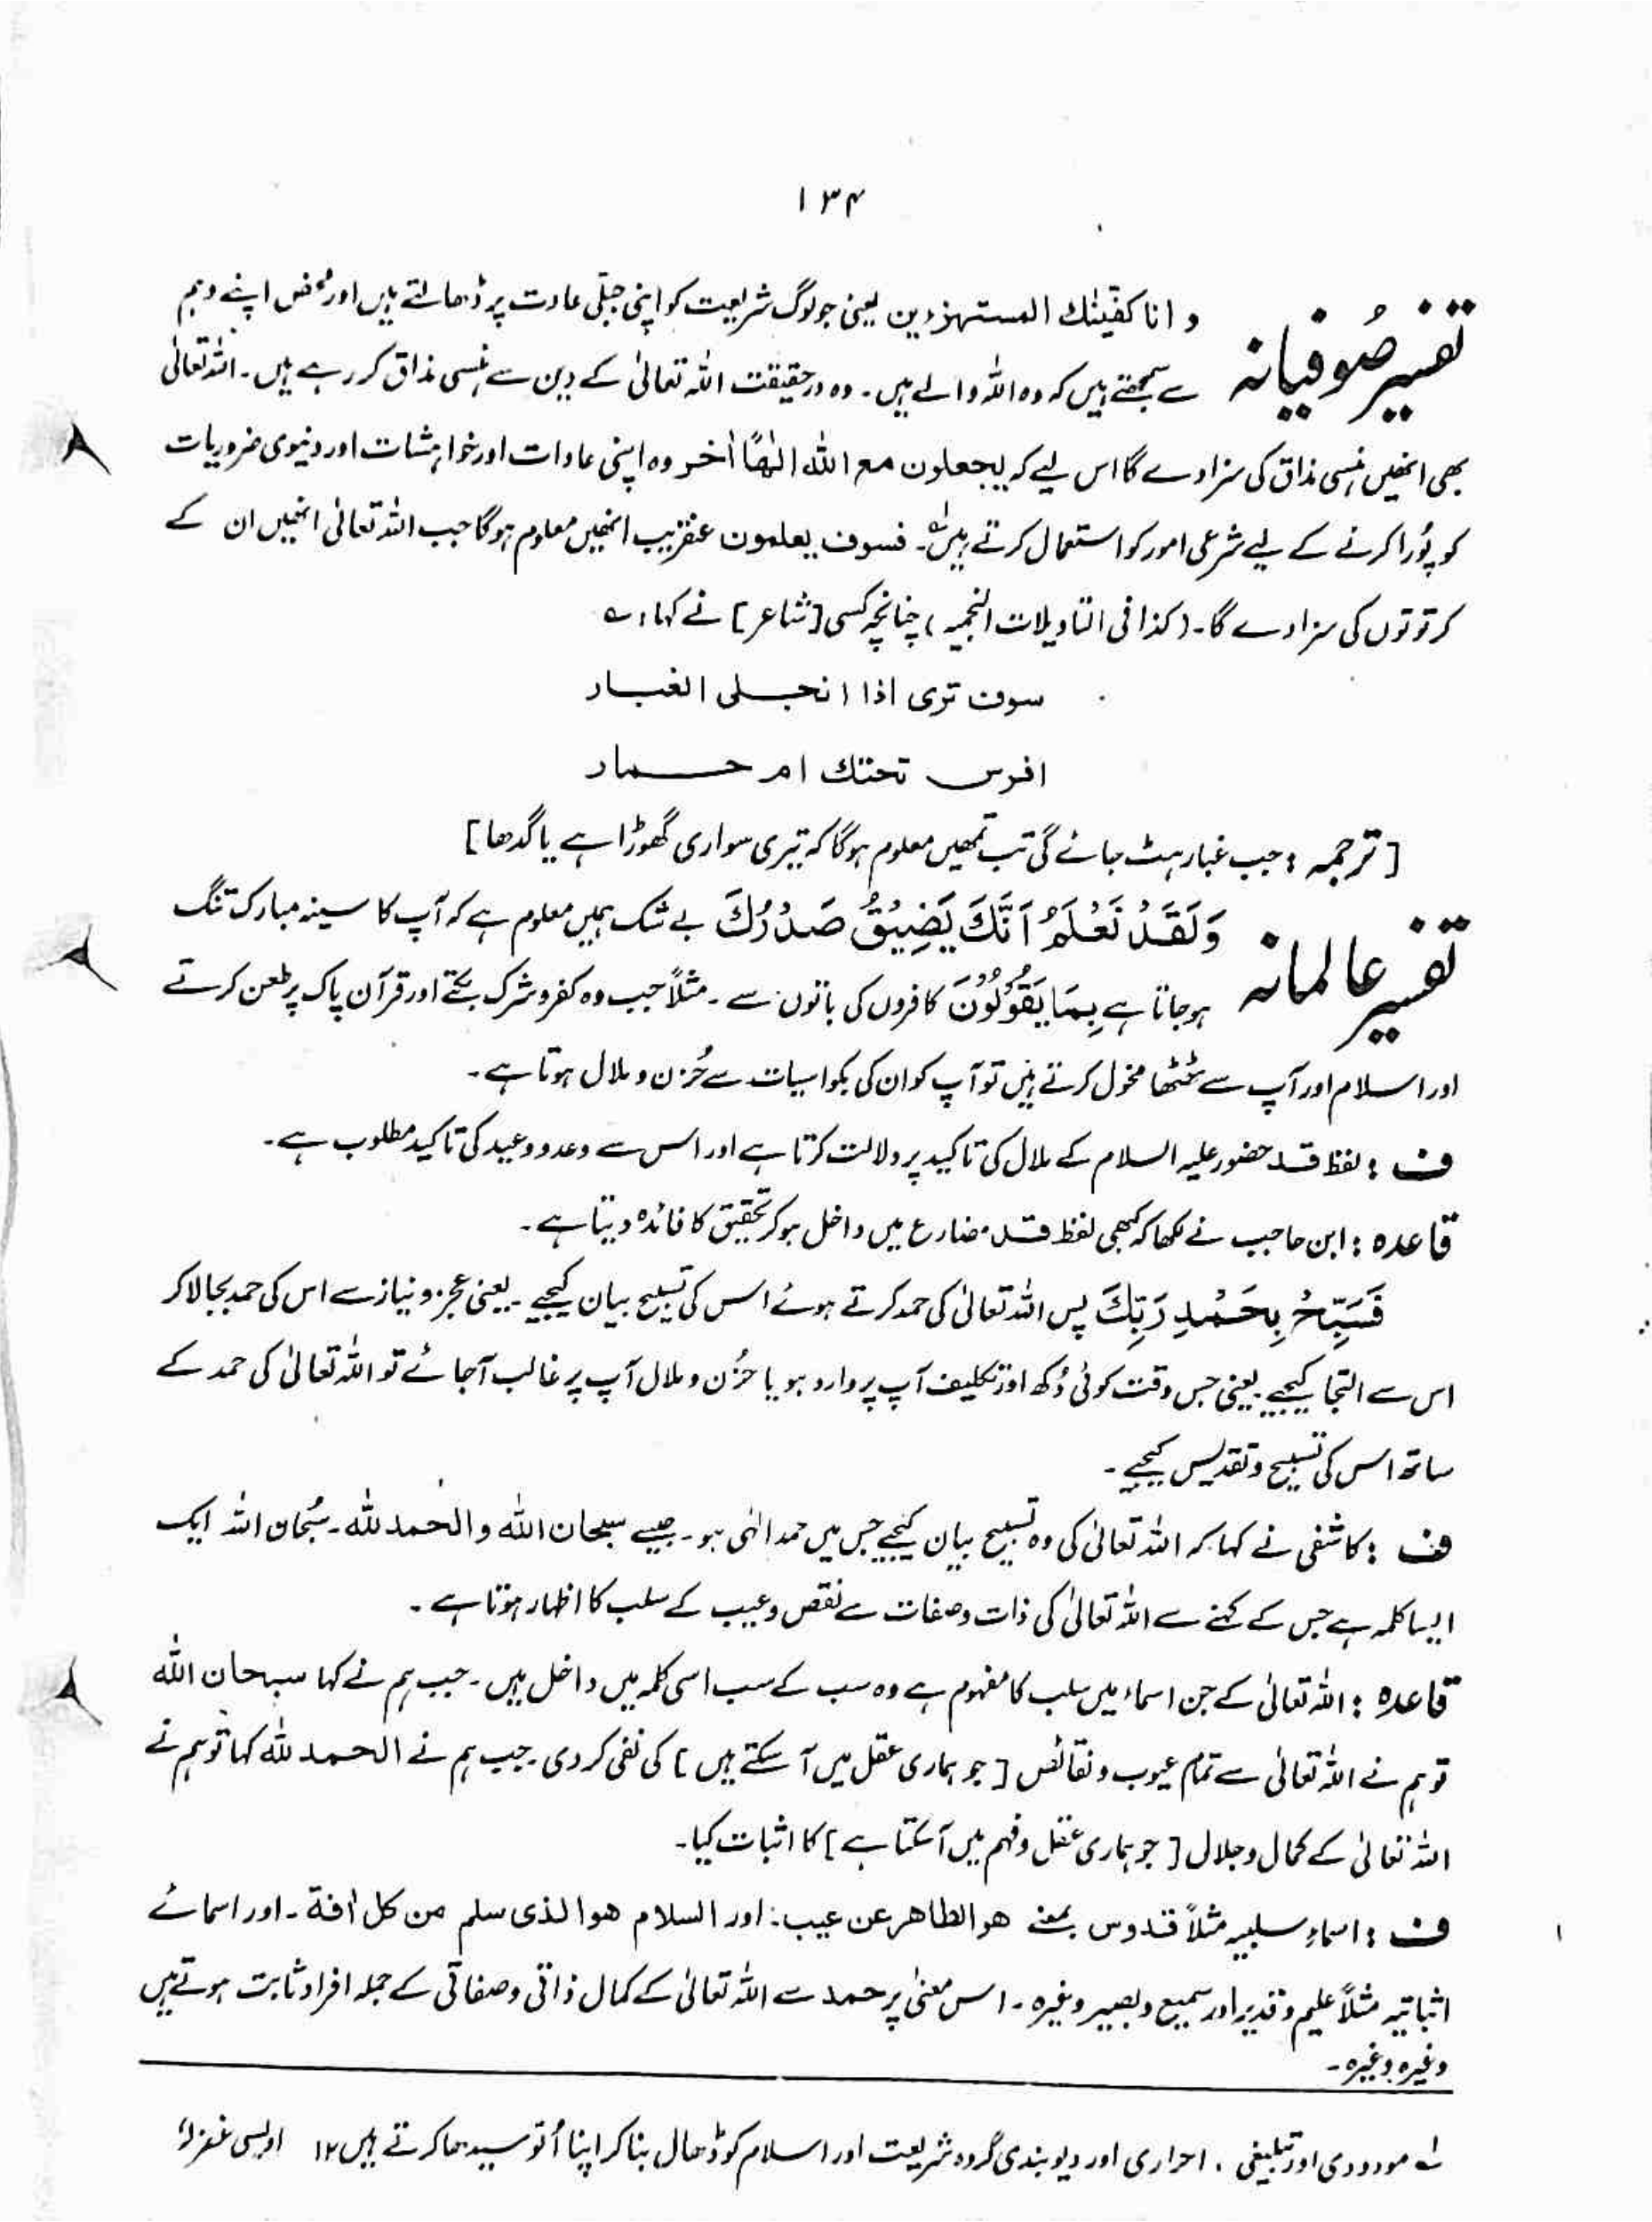 ۱۳۴
تفسیر صُوفیانہ و انا کفیّنٰك المستهزءین یعنی جو لوگ شریعت کو اپنی جبلّی عادت پر ڈھالتے ہیں اور محض اپنے وہم
سے سمجھتے ہیں کہ وہ اللہ والے ہیں۔ وہ درحقیقت اللہ تعالیٰ کے دین سے ہنسی مذاق کر رہے ہیں۔ اللہ تعالیٰ
بھی انھیں ہنسی مذاق کی سزا دے گا اس لیے کہ یجعلون مع اللہ الٰھًا اٰخر وہ اپنی عادات اور خواہشات اور دنیوی ضروریات
کو پُورا کرنے کے لیے شرعی امور کو استعمال کرتے ہیں لہ۔ فسوف یعلمون عنقریب انھیں معلوم ہوگا جب اللہ تعالیٰ انھیں ان کے
کرتوتوں کی سزا دے گا۔ (کذا فی التاویلات النجمیہ) چنانچہ کسی [شاعر] نے کہا: ؎
سوف تری اذا انجلی الغبار
افرس تحتك ام حمار
[ترجمہ : جب غبار ہٹ جائے گی تب تمھیں معلوم ہوگا کہ تیری سواری گھوڑا ہے یا گدھا]
تفسیر عالمانہ وَلَقَدْ نَعْلَمُ اَنَّكَ یَضِیْقُ صَدْرُكَ بے شک ہمیں معلوم ہے کہ آپ کا سینہ مبارک تنگ
ہو جاتا ہے بِمَا یَقُوْلُوْنَ کافروں کی باتوں سے ۔ مثلاً جب وہ کفر و شرک بکتے اور قرآن پاک پر طعن کرتے
اور اسلام اور آپ سے ٹھٹھا مخول کرتے ہیں تو آپ کو ان کی بکواسیات سے حُزن و ملال ہوتا ہے ۔
ف : لفظ قد حضور علیہ السلام کے ملال کی تاکید پر دلالت کرتا ہے اور اس سے وعدو وعید کی تاکید مطلوب ہے۔
قاعدہ : ابن حاجب نے لکھا کہ کبھی لفظ قد مضارع میں داخل ہو کر تحقیق کا فائدہ دیتا ہے ۔
فَسَبِّحْ بِحَمْدِ رَبِّكَ پس اللہ تعالیٰ کی حمد کرتے ہوئے اس کی تسبیح بیان کیجیے ۔ یعنی عجز و نیاز سے اس کی حمد بجا لا کر
اس سے التجا کیجیے یعنی جس وقت کوئی دُکھ اور تکلیف آپ پر وارد ہو یا حزُن و ملال آپ پر غالب آجائے تو اللہ تعالیٰ کی حمد کے
ساتھ اس کی تسبیح و تقدیس کیجیے ۔
ف : کاشفی نے کہا کہ اللہ تعالیٰ کی وہ تسبیح بیان کیجیے جس میں حمد الٰہی ہو۔ جیسے سبحان اللہ والحمد للہ۔ سُبحان اللہ ایک
ایسا کلمہ ہے جس کے کہنے سے اللہ تعالیٰ کی ذات وصفات سے نقص و عیب کے سلب کا اظہار ہوتا ہے ۔
قاعدہ : اللہ تعالیٰ کے جن اسماء میں سلب کا مفہوم ہے وہ سب کے سب اسی کلمہ میں داخل ہیں ۔ جب ہم نے کہا سبحان اللہ
تو ہم نے اللہ تعالیٰ سے تمام عیوب و نقائص [جو ہماری عقل میں آسکتے ہیں] کی نفی کر دی ۔ جب ہم نے الحمد للہ کہا تو ہم نے
اللہ تعالیٰ کے کمال و جلال [جو ہماری عقل و فہم میں آسکتا ہے] کا اثبات کیا۔
ف : اسماءِ سلبیہ مثلاً قدوس بمعنے ھو الطاھر عن عیب : اور السلام ھو الذی سلم من کل اٰفة ۔ اور اسمائے
اثباتیہ مثلاً علیم و قدیر اور سمیع و بصیر وغیرہ ۔ اس معنیٰ پر حمد سے اللہ تعالیٰ کے کمال ذاتی و صفاتی کے جملہ افراد ثابت ہوتے ہیں
وغیرہ وغیرہ ۔
لہ مودودی اور تبلیغی ، احراری اور دیوبندی گروہ شریعت اور اسلام کو ڈھال بنا کر اپنا اُلّو سیدھا کرتے ہیں ۱۲ اویسی غفرلہٗ